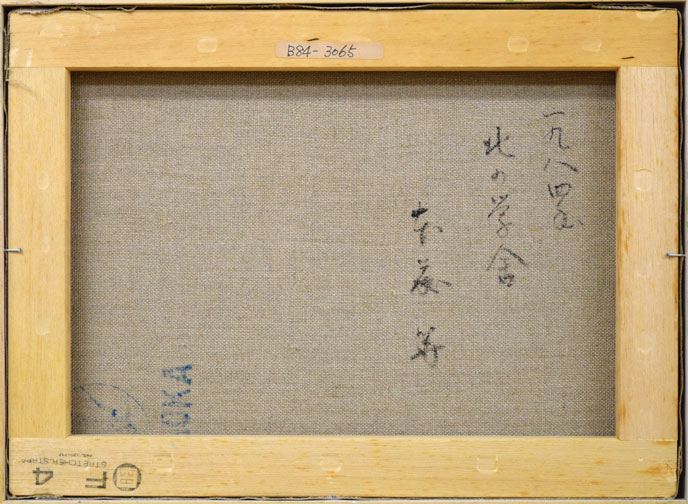 B84-3065
一九八四年
北の学舎
本荘
OKA
STRETCHER STRIP
F 4